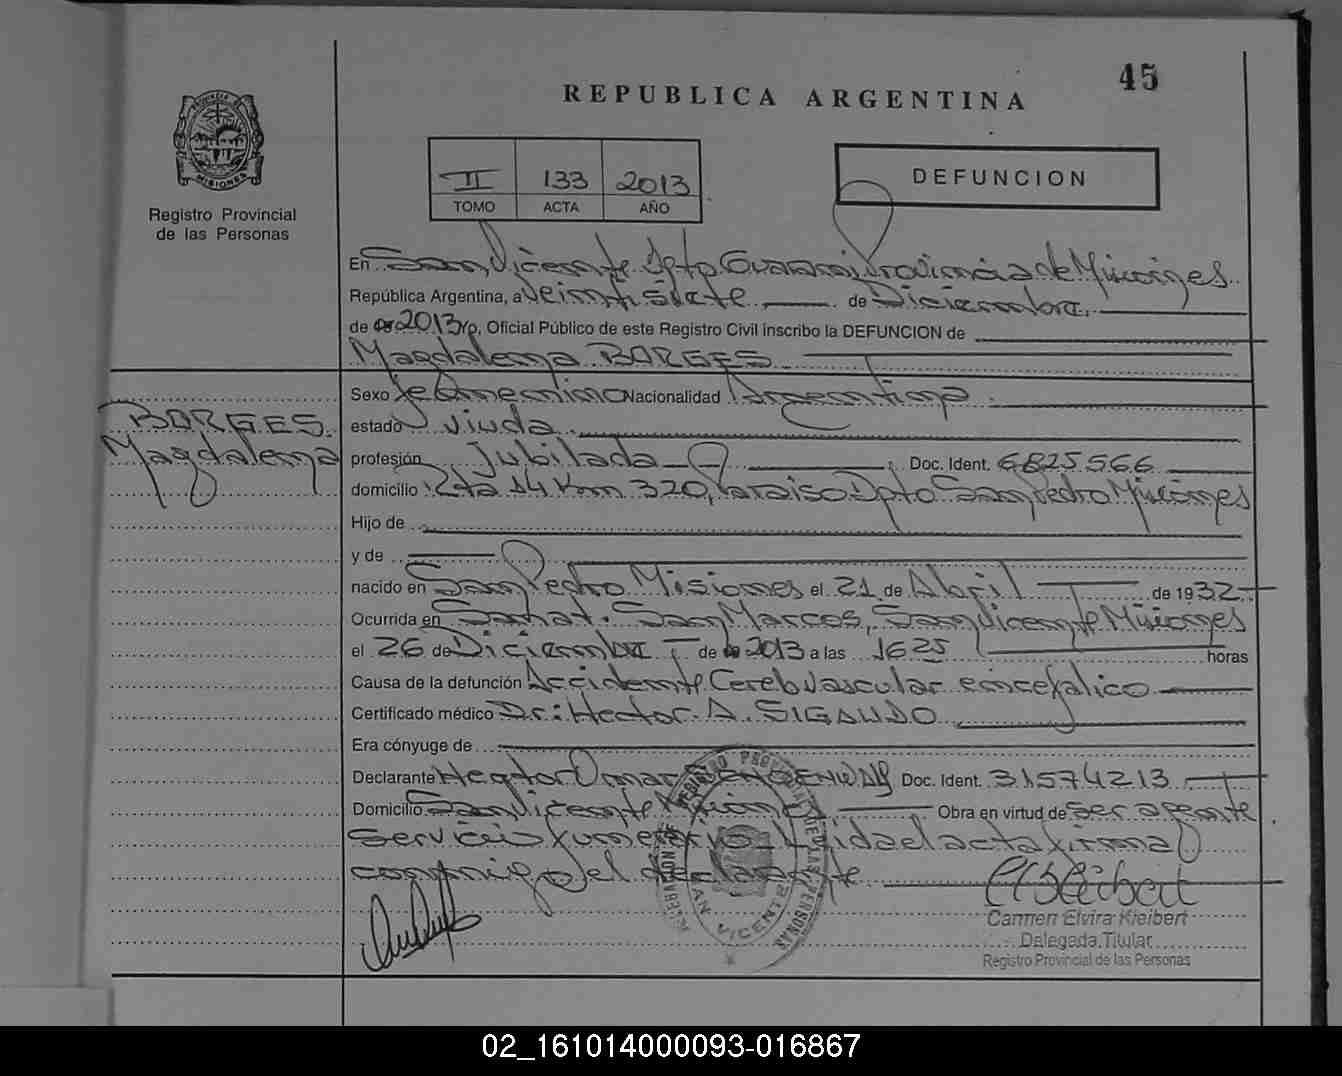 45
REPUBLICA ARGENTINA
PROVINCIA DE
MISIONES
Registro Provincial
de las Personas
II 133 2013
TOMO ACTA AÑO
DEFUNCION
En San Vicente Dpto Guaraní, Provincia de Misiones
República Argentina, a Veintisiete de Diciembre
de 2013 yo, Oficial Público de este Registro Civil inscribo la DEFUNCION de
Magdalena BORGES
BORGES
Magdalena
Sexo femenino Nacionalidad Argentina
estado Viuda
profesión Jubilada Doc. Ident. 6825566
domicilio Rta 14 Km 320, Paraiso Dpto San Pedro Misiones
Hijo de
y de
nacido en San Pedro Misiones el 21 de Abril de 1932
Ocurrida en Sanat. San Marcos, San Vicente Misiones
el 26 de Diciembre de 2013 a las 1625 horas
Causa de la defunción Accidente Cerebvascular encefalico
Certificado médico Dr: Hector A. SIGAUDO
Era cónyuge de
Declarante Hector Omar Doc. Ident. 31574213
Domicilio San Vicente Misiones Obra en virtud de ser agente
servicio funerario Leida el acta firma
conmigo el declarante
REGISTRO PROVINCIAL DE LAS PERSONAS
DELEGACION DE
SAN VICENTE
Carmen Elvira Kleibert
Delegada Titular
Registro Provincial de las Personas
02_161014000093-016867